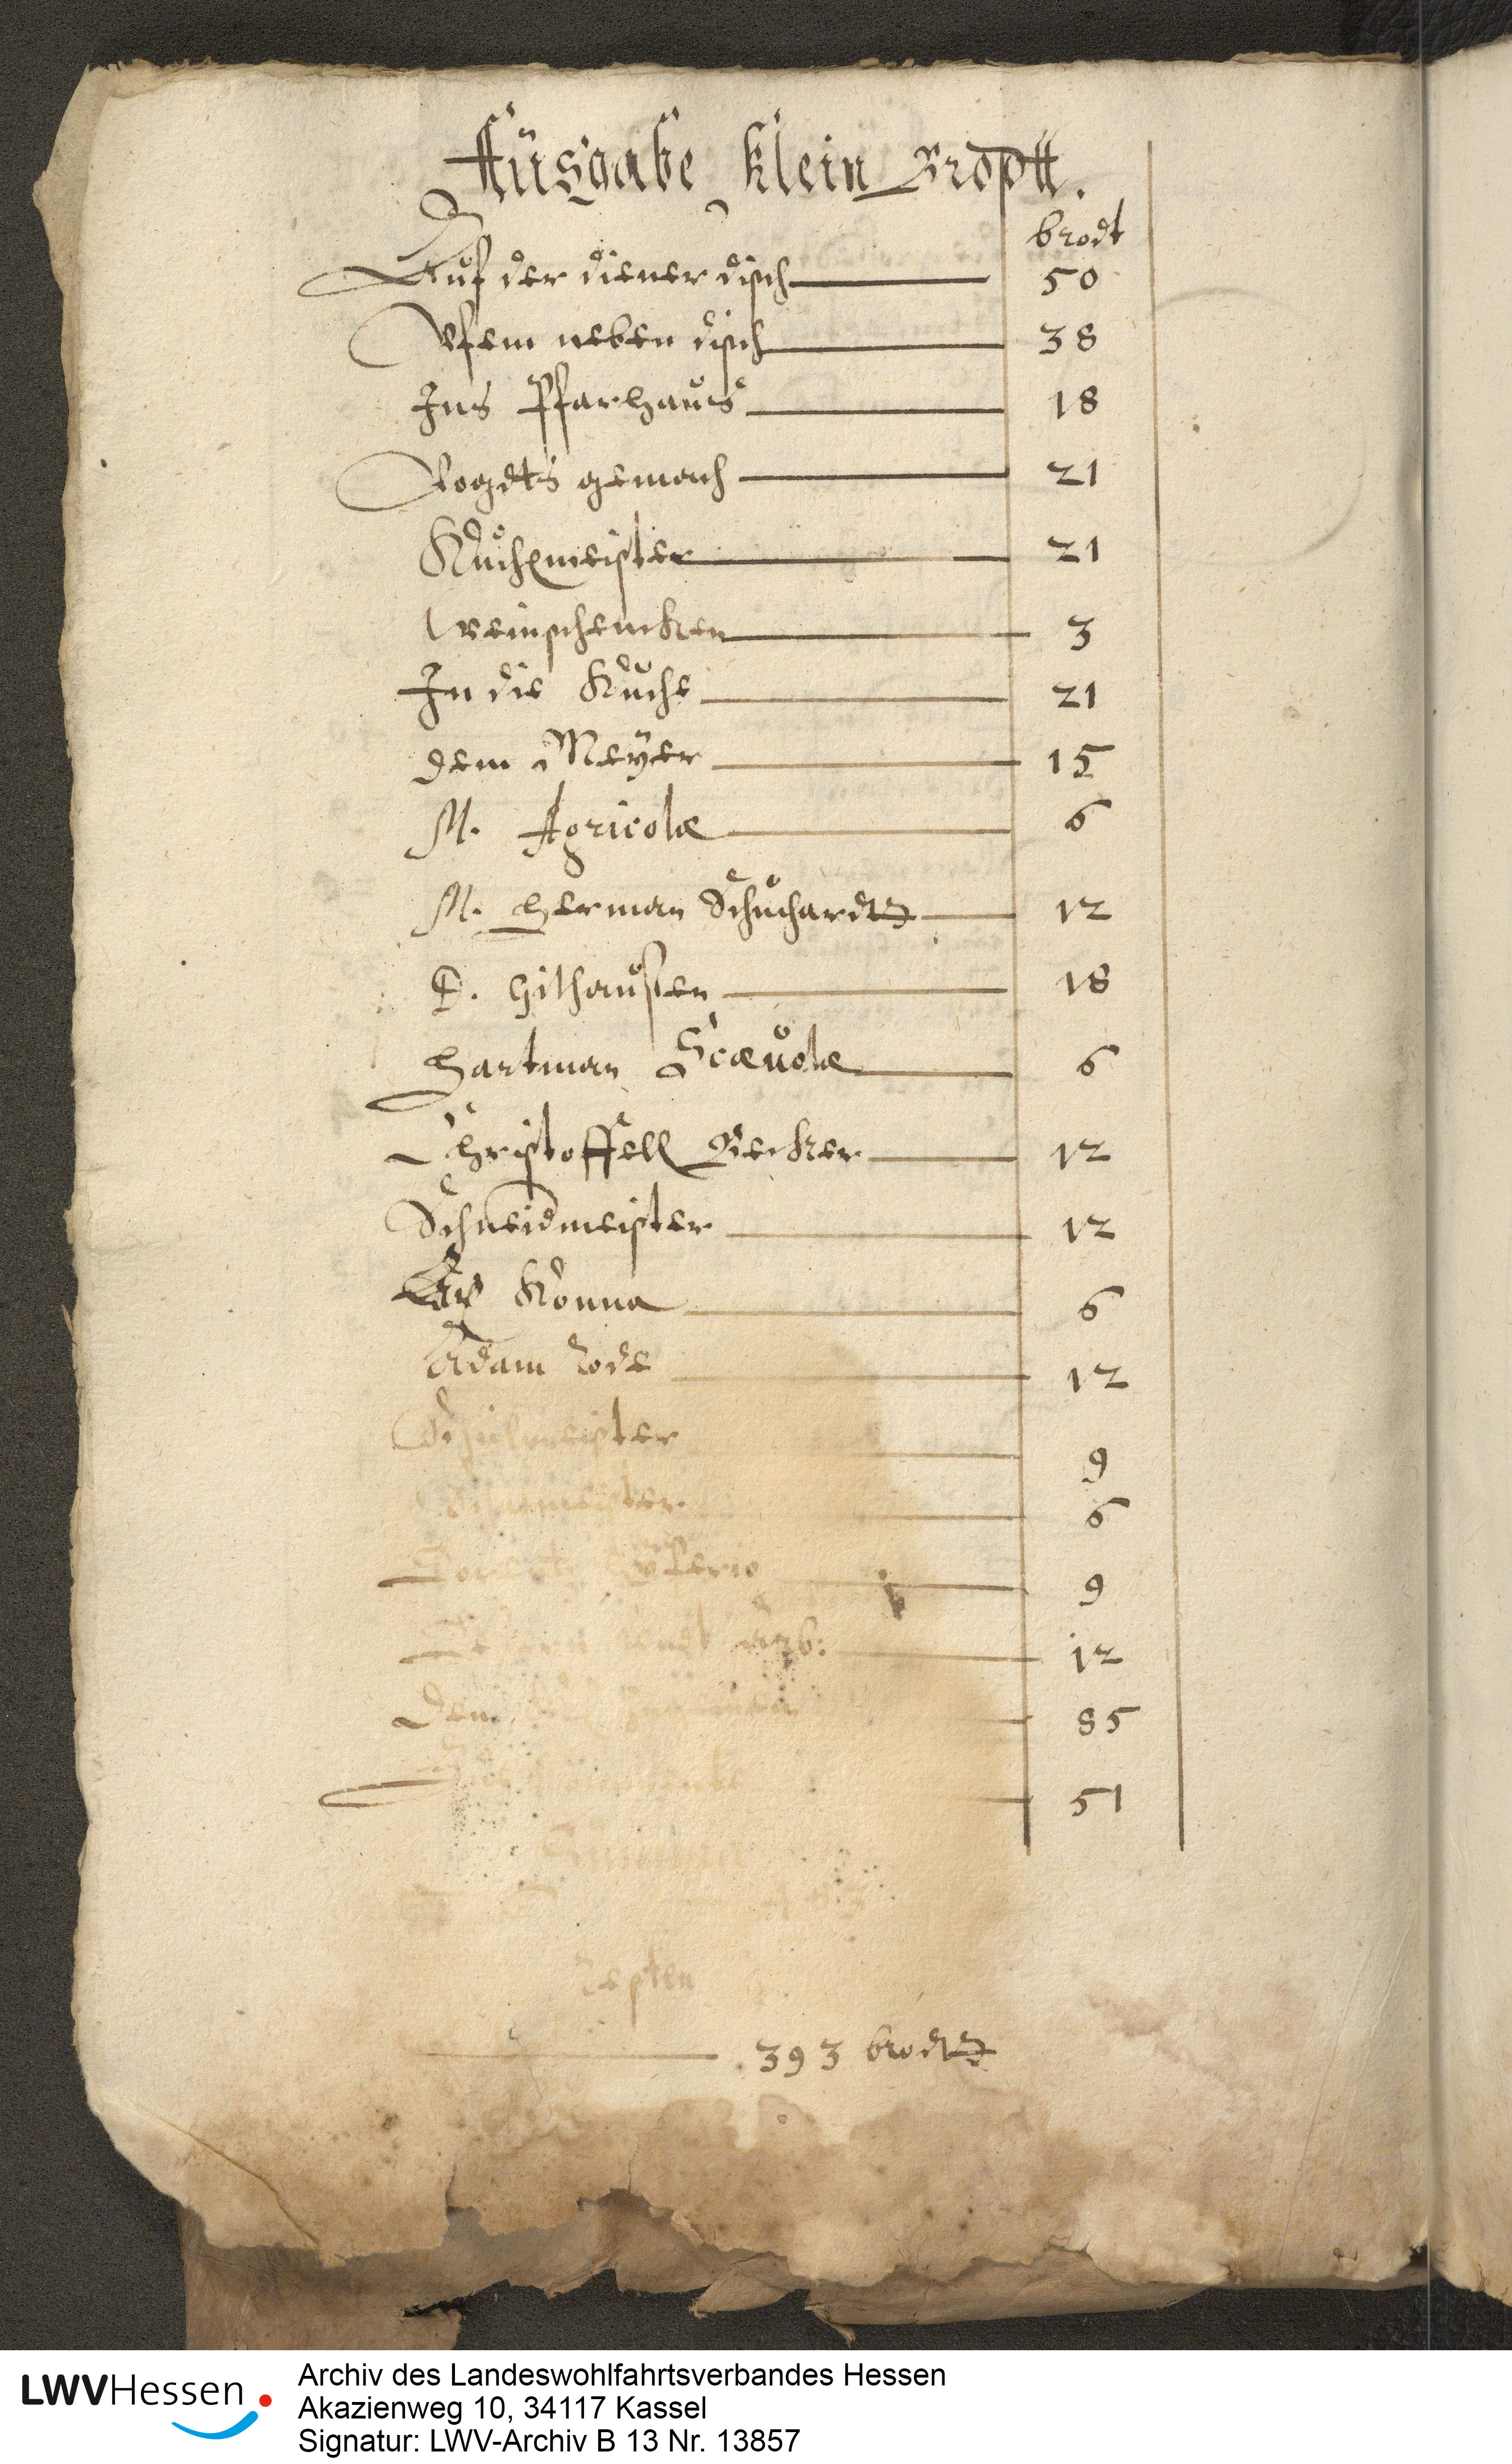 Ausgabe klein Brodtt.
brodt
Auf der diener disch 50
Ufem neben disch 38
Ins Pfarhaus 18
Vogdts gemach 21
Kuchemeister 21
Weinschencken 3
In die Kuche 21
dem Meÿer 15
M. Agricolæ 6
M. Herman Schuchardt 12
D. Hilhausen 18
Hartman Scævolæ 6
Christoffell Becker 12
Schneidmeister 12
Konna 6
Adam Rode 12
Schulmeister 9
6
9
12
Dem 85
51
Summa
Resten
393 brodt
LWVHessen
Archiv des Landeswohlfahrtsverbandes Hessen
Akazienweg 10, 34117 Kassel
Signatur: LWV-Archiv B 13 Nr. 13857